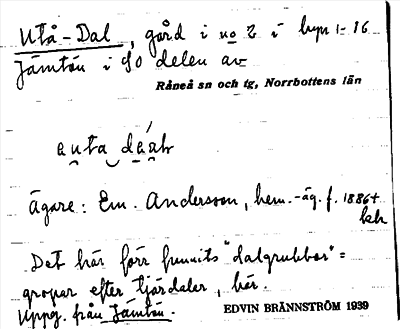 Utå-Dal, gård i no 2 i byn 1-16
Jämtön i SO delen av
Råneå sn och tg, Norrbottens län
Ägare: Em. Andersson, hem.-äg. f. 1886 +
Det här förr funnits "dalgrubbor" =
gropar efter tjärdalar, här.
Uppg. från Jämtön.
EDVIN BRÄNNSTRÖM 1939